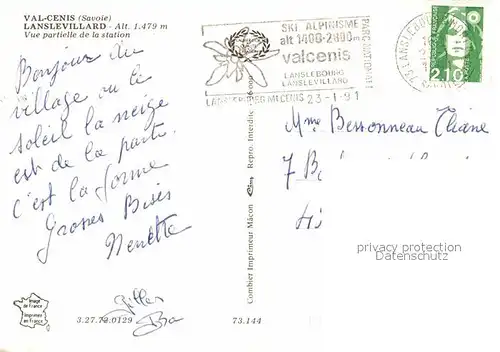 VAL-CENIS (Savoie)
LANSLEVILLARD - Alt. 1.479 m
Vue partielle de la station
Bonjour du
village ou le
soleil la neige
est de la partie.
c'est la forme
Grosses Bises
Nenette
Gilles
SKI ALPINISME
alt 1400-2800m
valcenis
LANSLEBOURG
LANSLEVILLARD
PARC NATIONAL
LANSLEBOURG MT CENIS 23-1-91
73 LANSLEBOURG
2,10
Mme Bessonneau Eliane
7 B
privacy protection
watermark
Combier Imprimeur Mâcon
Repro. Interdite
Image
de France
Imprimée
en France
3.27.72.0129
73.144